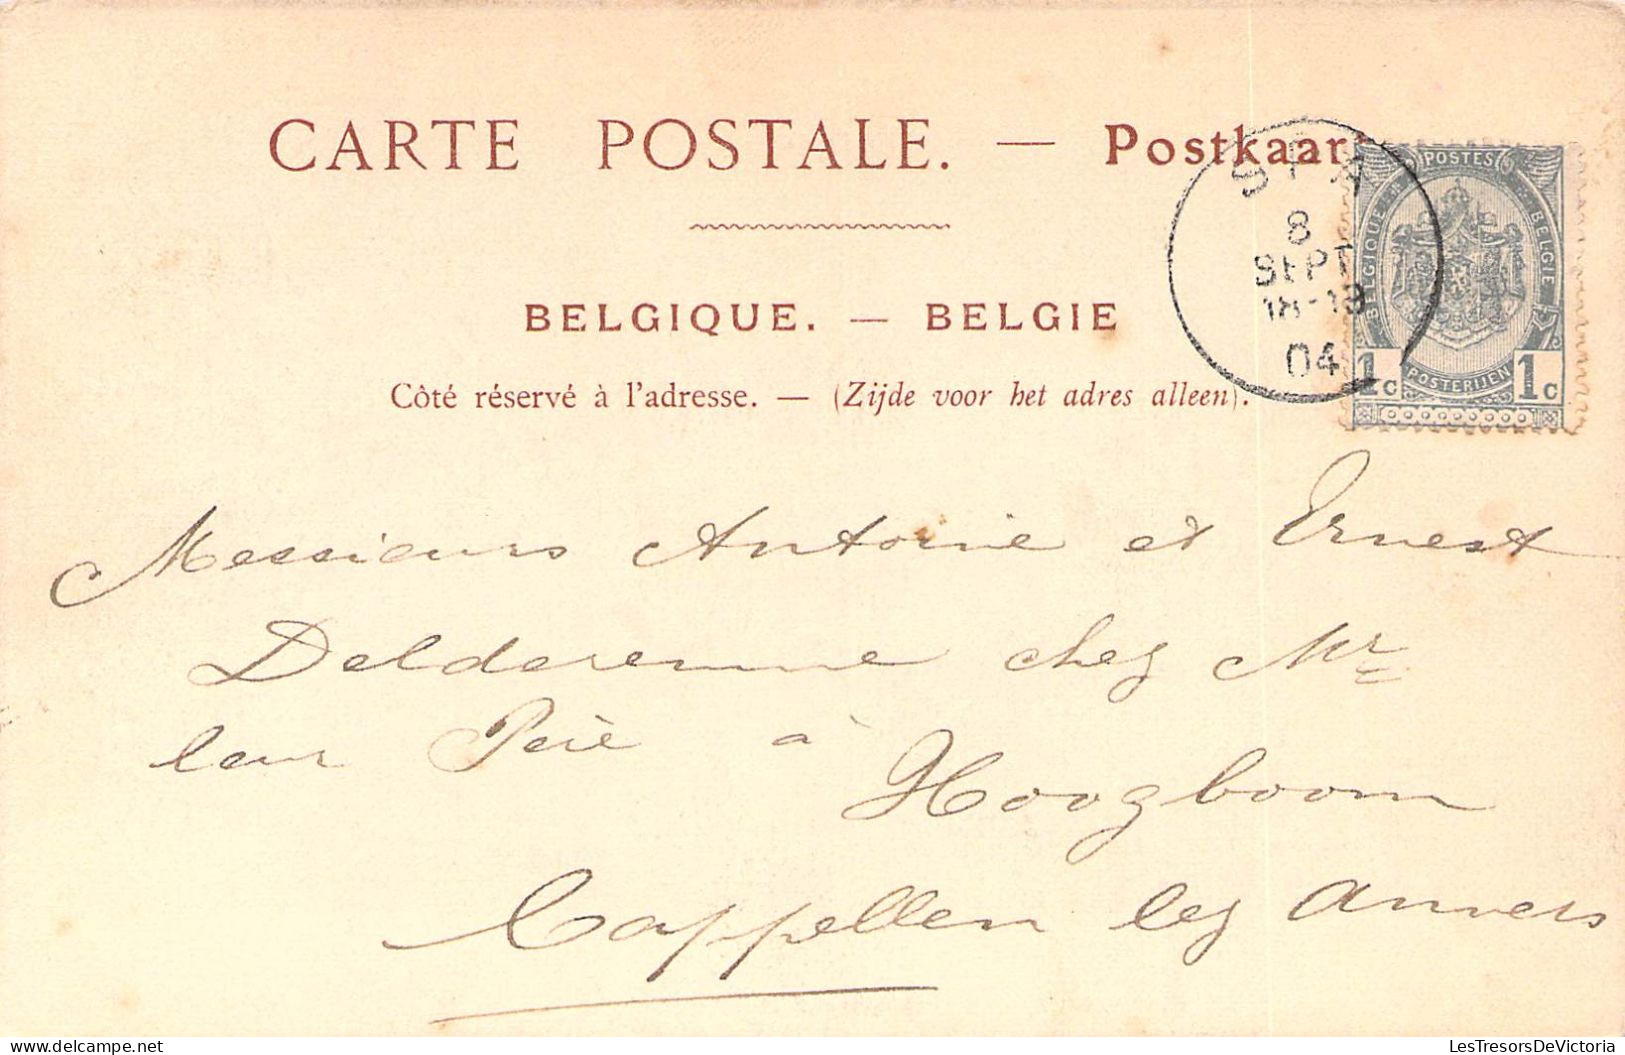 CARTE POSTALE. — Postkaart
SPA
8
SEPT
18-19
04
POSTES
BELGIQUE EN BELGIE
1c POSTERIJEN 1c
BELGIQUE. — BELGIE
Côté réservé à l'adresse. — (Zijde voor het adres alleen).
Messieurs Antoine et Ernest
Delderenne chez Mr
leur Père à
Hoogboom
Cappellen lez Anvers
LesTresorsDeVictoria
delcampe.net
LesTresorsDeVictoria